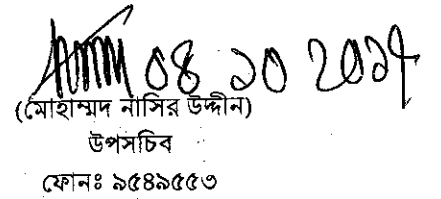 ০৪ ১০ ২০১৭
(মোহাম্মদ নাসির উদ্দীন)
উপসচিব
ফোনঃ ৯৫৪৯৫৫৩